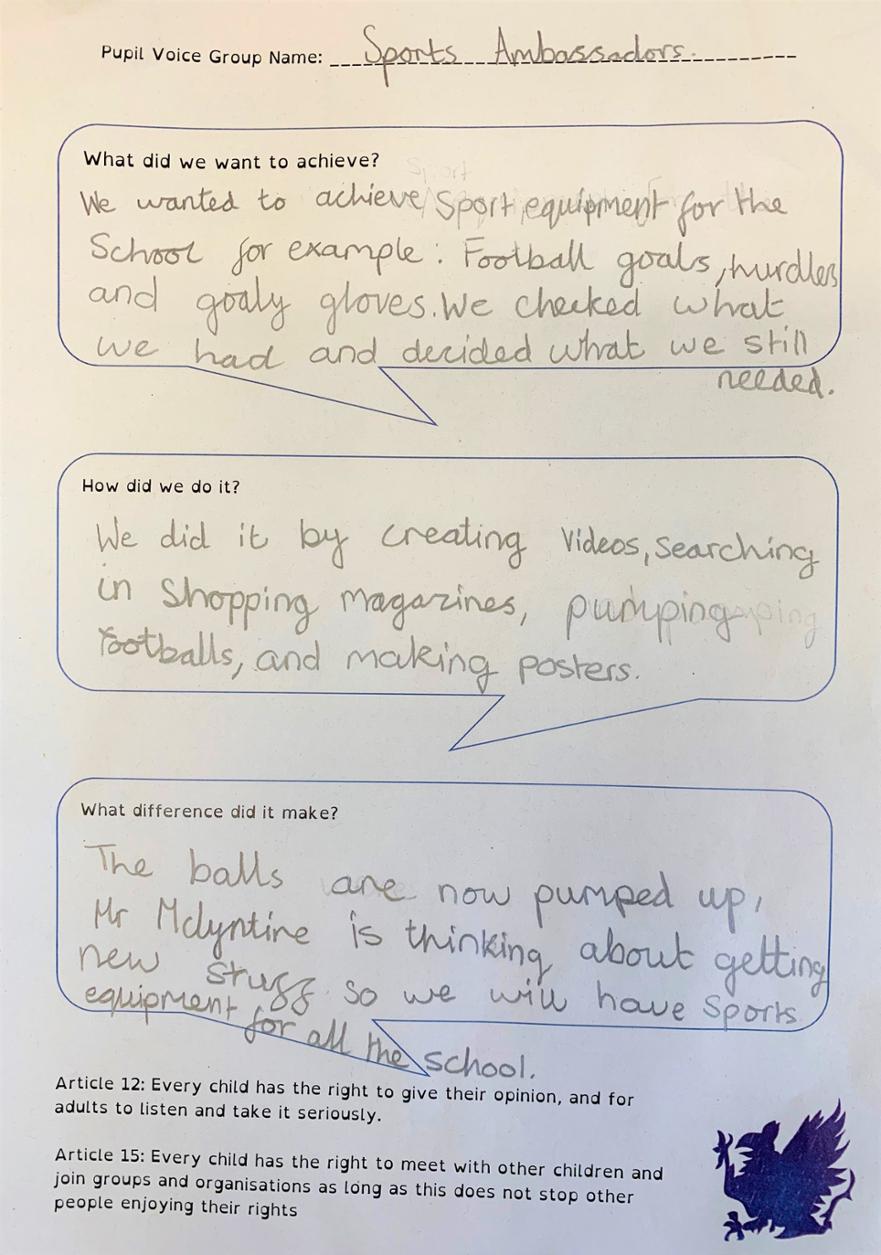 Pupil Voice Group Name: Sports Ambassadors.
What did we want to achieve?
We wanted to achieve Sport equipment for the
School for example: Football goals, hurdles
and goaly gloves. We checked what
we had and decided what we still
needed.
How did we do it?
We did it by creating Videos, Searching
in Shopping Magazines, pumping
footballs, and making posters.
What difference did it make?
The balls are now pumped up,
Mr McIyntine is thinking about getting
new stuff so we will have Sports
equipment for all the school.
Article 12: Every child has the right to give their opinion, and for
adults to listen and take it seriously.
Article 15: Every child has the right to meet with other children and
join groups and organisations as long as this does not stop other
people enjoying their rights